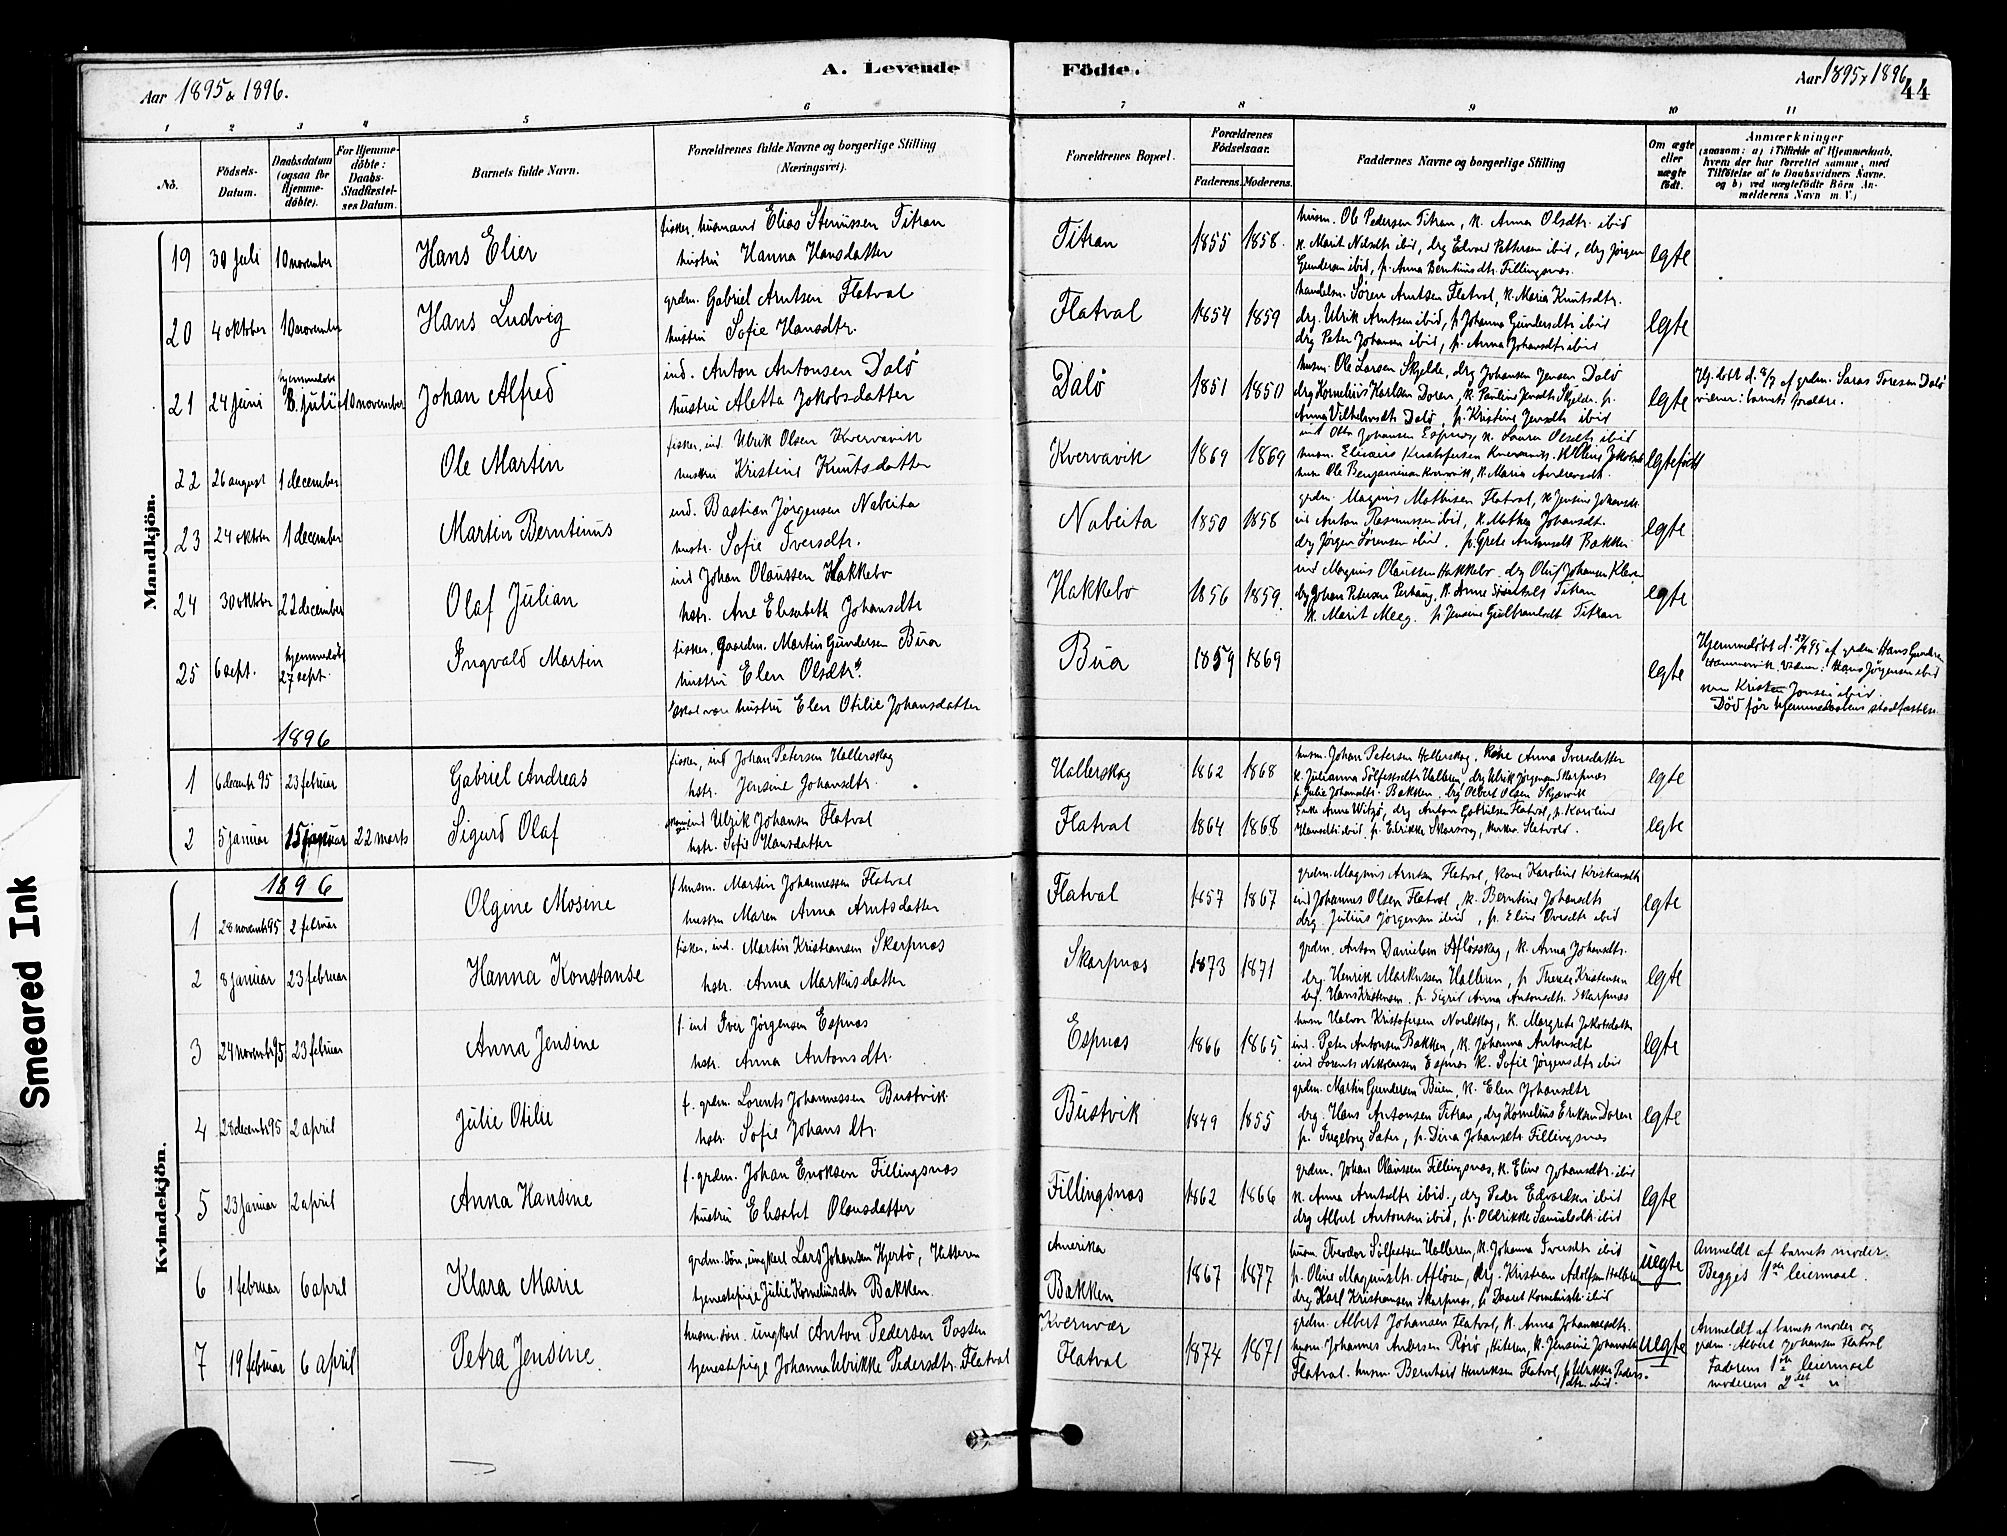 Smeared Ink
Aar 1895 & 1896.
A. Levende
Födte.
Aar 1895 & 1896
44
1 2 3 4 5 6
7 8 9 10 11
No.
Födsels-Datum.
Daabsdatum (ogsaa for Hjemmedöbte).
For Hjemmedöbte: Daabs-Stadfæstelses Datum.
Barnets fulde Navn.
Forældrenes fulde Navne og borgerlige Stilling (Næringsvei).
Forældrenes Bopæl.
Forældrenes Födselsaar.
Faderens. Moderens.
Faddernes Navne og borgerlige Stilling
Om ægte eller uægte födt.
Anmærkninger
(saasom: a) i Tilfælde af Hjemmedaab, hvem der har forrettet samme, med Tilföielse af to Daabsvidners Navne, og b) ved uægtefödte Börn Anmelderens Navn m. V.)
Mandkjön.
19 30 Juli 10 november Hans Elier
fisker, husmand Elias Steriussen Titran
hustru Hanna Hansdatter
Titran 1855 1858.
husm. Ole Pedersen Titran, k. Anna Olsdtr. ibid
k. Marit Nilsdtr ibid, drg Edvard Pettersen ibid, drg Jörgen
Gundersen ibid, p. Anna Berntinusdtr. Fillingsnæs
egte
20 4 oktober 10 november Hans Ludvig
grdm. Gabriel Arntsen Flatval
hustru Sofie Hansdtr.
Flatval 1854 1859
handelsm. Sören Arntsen Flatval, k. Maria Knutsdtr.
drg. Ulrik Arntsen ibid, p. Johanna Gundersdtr ibid
drg Peter Johansen ibid, p. Anna Johansdtr ibid
egte
21 24 Juni hjemmedöbt 8. juli 10 november Johan Alfred
ind. Anton Antonsen Dalö
hustru Aletta Jakobsdatter
Dalö 1851 1850
husm. Ole Larsen Skjelde, drg Johansen Jensen Dalö
drg Kornelius Karlsen Doren, k. Pauline Jensdtr Skjelde. p.
Anna Vilhelmsdtr Dalö, p. Kristine Jensdtr ibid
egte
Hj. döbt d. 8/7 af grdm. Saras Toresen Dalö
vidner: barnets forældre.
22 26 august 1 december Ole Martin
fisker, ind. Ulrik Olsen Kvervavik
hustru Kristine Knutsdatter
Kvervavik 1869 1869
ind Otto Johansen Espnæs, k. Laura Olsdtr ibid
husm Ole Benjaminsen Kvervavik, k. Maria Andreasdtr
egtefödt
23 24 oktober 1 december Martin Berntinus
ind. Bastian Jörgensen Nabeita
hustr. Sofie Iversdtr.
Nabeita 1850 1858
grdm. Magnus Mathisen Flatval, k Jensine Johansdtr
ind Anton Rasmussen ibid, k. Mathea Johansdtr.
drg Jörgen Sörensen ibid. p. Grete Antonsdtr Bakken
egte
24 30 oktober 22 december Olaf Julian
ind Johan Olaussen Hakkebo
hstr. Ane Elisabeth Johansdtr
Hakkebo 1856 1859.
ind Magnus Olaussen Hakkebo, drg Oluf Johansen Kleven
k. Marit Meeg. p. Jensine Gulbrandsdtr Titran
egte
25 6 sept. hjemmedöbt 27 sept. Ingvald Martin
fisker, Gaardm. Martin Gundersen Bua
hustru Elen Olsdtr?
skal være hustru Elen Otilie Johansdatter
Bua 1859 1869
egte
Hjemmedöbt d. 27/9 95 af grdm. Hans Gundersen
Hammervik. Vidner: Hans Jörgensen ibid
Kristen Jonsen ibid.
Död för hjemmedaabens stadfæstelse.
1896
1 6 decemb 95 23 februar Gabriel Andreas
fisker, ind Johan Petersen Hallerskag
hstr. Jensine Johansdtr.
Hallerskag 1862 1868
husm. Johan Petersen Hellerskag, Kone Anna Iversdatter
k. Julianna Sölfestsdtr Halleren, drg Ulrik Jörgensen Skarpnæs
p. Julie Johansdtr. Bakken, drg Olbert Olsen Skjærvik
egte
2 5 januar 15 januar 22 marts Sigurd Olaf
ind Ulrik Johansen Flatval
hstr. Sofie Hansdatter
Flatval 1864 1868
Enke Anne Witzö, drg Anton Gabrielsen Flatval, p. Karoline
Hansdtr ibid. p. Edrikke Skarsvog, kirkes. Sletvold.
egte
Kvindekjön.
1896
1 28 novemb 95 2 februar Olgine Mosine
f. husm. Martin Johannessen Flatval
hustru Maren Anna Arntsdatter
Flatval 1857 1867
grdm. Magnus Arntsen Flatval, Kone Karoline Kristiansdtr
ind Johannes Olsen Flatval, k. Berntine Johansdtr
drg. Julius Jörgensen ibid, p. Eline Iversdtr ibid
egte
2 8 januar 23 februar Hanna Konstanse
fisker, ind. Martin Kristiansen Skarpnæs
hstr. Anna Markusdatter
Skarpnæs 1873 1871
grdm. Anton Danielsen Aflöisskag, k. Anna Johansdtr.
drg. Henrik Markussen Halleren, p. Therese Kristensen
drg. Hans Kristensen. p. Sigrid Anna Antonsdtr. Skarpnæs
egte
3 24 novemb 95 23 februar Anna Jensine
f. ind Iver Jörgensen Espnæs
hstr. Anna Antonsdtr.
Espnæs 1866 1865.
husm Halvor Kristofersen Nordskag, k. Margrete Jakobsdatter
ind. Peter Antonsen Bakken, k. Johanna Antonsdtr
ind Lorents Nikolaisen Espnæs k. Sofie Jörgensdtr ibid
egte
4 28 decemb 95 2 april Julie Otilie
f. grdm. Lorents Johannessen Bustvik
hstr. Sofie Johansdtr.
Bustvik 1849 1855
grdm. Martin Gundersen Buen, k. Elen Johansdtr
drg. Hans Antonsen Titran, drg Kornelius Eriksen Doren
p. Ingeborg Sæter, p. Dina Johansdtr Fillingsnæs
egte
5 23 januar 2 april Anna Hansine
f. grdm. Johan Enoksen Fillingsnæs
hustru Elisabet Olausdatter
Fillingsnæs 1862 1866
grdm. Johan Olaussen Fillingsnæs, k. Eline Johansdtr. ibid
k. Anna Arntsdtr ibid., drg Peder Edvardsen ibid
drg Albert Antonsen ibid, p. Oldrikke Samuelsdtr ibid
egte
6 1 februar 6 april Klara Marie
grdm. sön, ungkarl Lars Johansen Hjertö, Hitteren
tjenestepige Julie Korneliusdtr Bakken.
Amerika
Bakken
1867 1877
husm. Theodor Sölfestsen Halleren, k. Johanna Iversdtr ibid
p. Oline Magnusdtr. Aflösen, drg. Kristian Adolfsen Halleren
drg Karl Kristiansen Skarpnæs, p. Daaret Korneliusdtr ibid
uegte
Anmeldt af barnets moder.
Begges 1ste leiermaal.
7 19 februar 6 april Petra Jensine.
husm. sön. ungkarl Anton Pedersen Posten
tjenestepige Johanna Ulrikke Pedersdtr. Flatval
Kvernvær
Flatval
1874 1871
grdm. Albert Johansen Flatval, k. Anna Johannesdtr.
husm Johannes Andersen Rörö, Hiteren, k. Jensine Johansdtr
Flatval. husm. Bernhard Henriksen Flatval, p. Ulrikke Peders-
dtr. ibid.
uegte
Anmeldt af barnets moder og
grdm. Albert Johansen Flatval
Faderens 1ste leiermaal
moderens 2det "